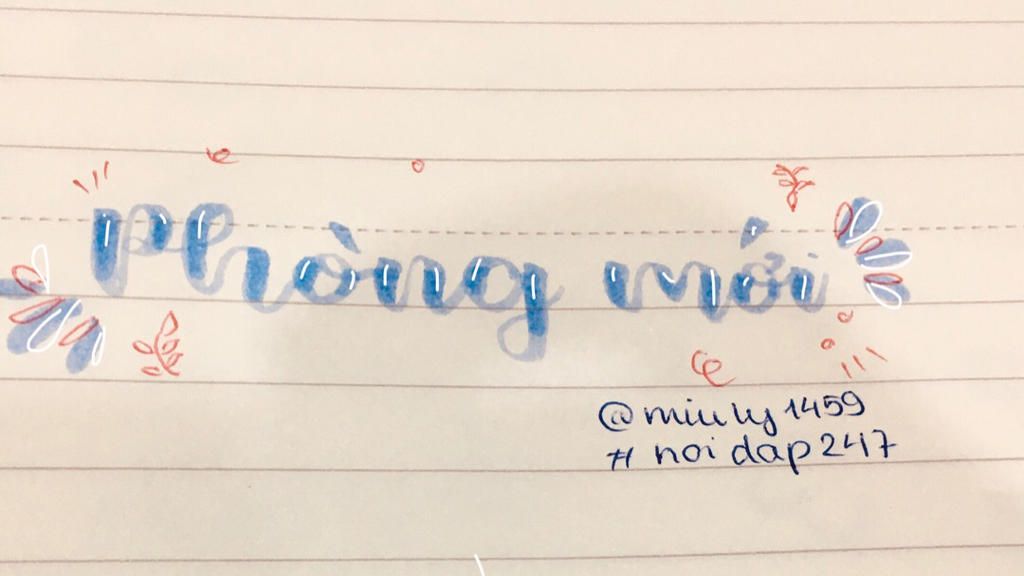 Phòng mới
@miuly1459
# hoidap247